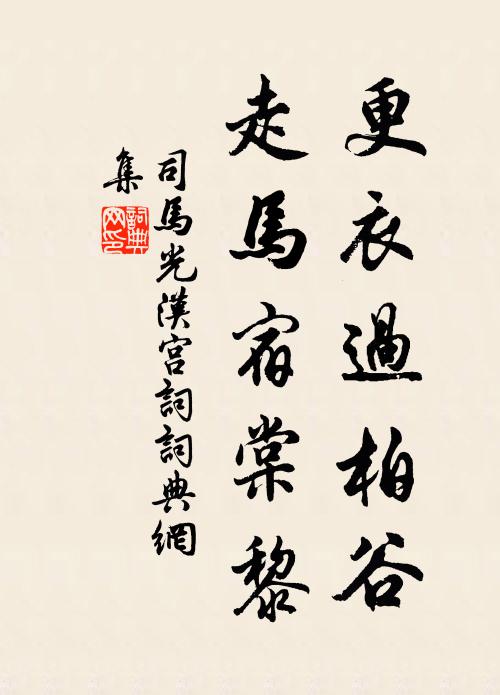 更衣過柏谷
走馬宿棠黎
司馬光漢宮詞詞典網
集
詞典網印